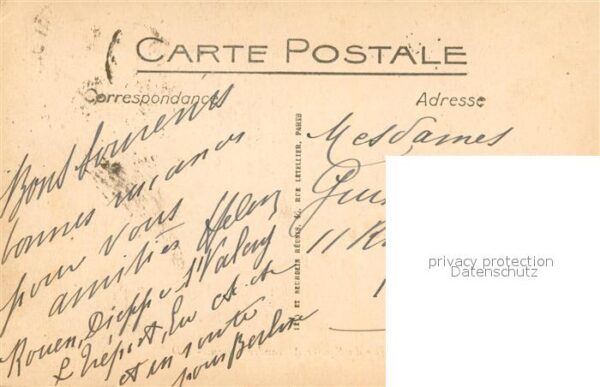 CARTE POSTALE
Correspondance
Adresse
Bons Souvenirs
bonnes vacances
pour vous
amitiés
Rouen, Dieppe St Valery
Le Tréport, Eu
et en route
pour Berline
Mesdames
11
LEV ET NEURDEIN RÉUNIS, 44, RUE LETELLIER, PARIS
privacy protection
Datenschutz